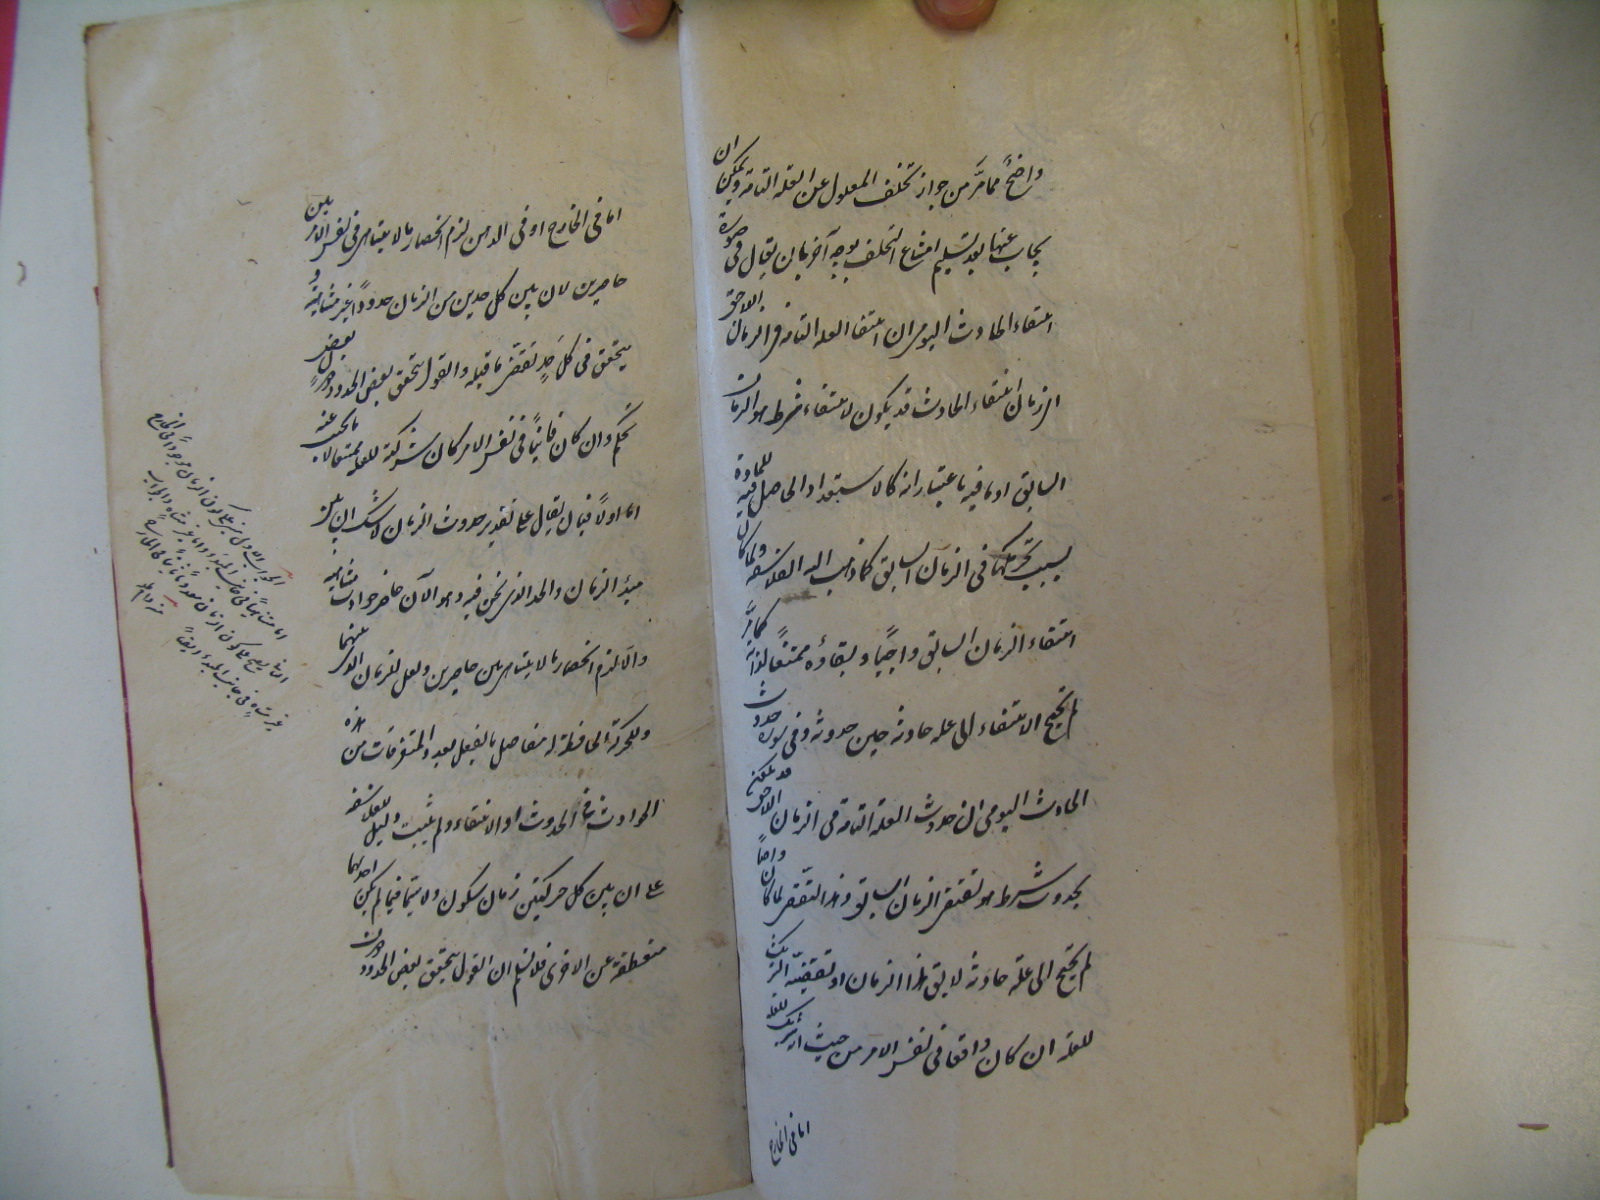 واضحٌ ممامرَّ من جواز تخلف المعلول عن العلة التامة ويمكن ان
يجاب عنها بعد تسليم امتناع التخلف بوجه آخر بان يقال فى صورة
انتفاء الحادث اليومى ان انتفاء العلة التامة فى الزمان اللاحق
انتفاء الحادث قد يكون لانتفاء شرط هو الزمان
السابق او ما فيه باعتبار انه كالاستعداد الحاصل فيه للمادة
بسبب تحركها فى الزمان السابق كما ذهب اليه الفلاسفة ولما كان
انتفاء الزمان السابق واجباً وبقاؤه ممتنعاً لذاته كما مرَّ
لم يحتج الانتفاء الى علة حادثة حين حدوثه وفى صورة حدوث
الحادث اليومى ان حدوث العلة التامة فى الزمان اللاحق قد يمكن
بحدوث شرط هو تقضى الزمان السابق وهذا التقضى لما كان واجباً
لم يحتج الى علة حادثة لا يق هذا الزمان او تقضيه الشريك
للعلة ان كان واقعا فى نفس الامر من حيث انه شريك للعلة
اما فى الخارج
اما فى الخارج او فى الذهن لزم انحصار ما لا يتناهى فى نفس الامر بين
حاصرين لان بين كل حدين من الزمان حدوداً غير متناهية و
يتحقق فى كل حدٍ تقضى ما قبله والقول بتحقق بعض الحدود دون بعض
تحكم وان كان فانياً فى نفس الامر كان شركته للعلة ممتنعا لا نا نجيب عنه
اما اولاً فبان يقال على تقدير حدوث الزمان لا شك ان بين
مبدء الزمان والحد الذى نحن فيه وهو الآن حاضر حوادث متناهية
والا لزم انحصار ما لا يتناهى بين حاصرين ولعل للزمان الذى بينهما
وللحركة الحافظة له مفاصل بالفعل بعدد المتفرقات من هذه
الحوادث فى الحدوث او الانتفاء ولم يثبت دليل للفلاسفة
على ان بين كل حركتين زمان سكون ولا سيما فيما لم يكن احديهما
منعطفة عن الاخرى فلا نسلم ان القول بتحقق بعض الحدود دون